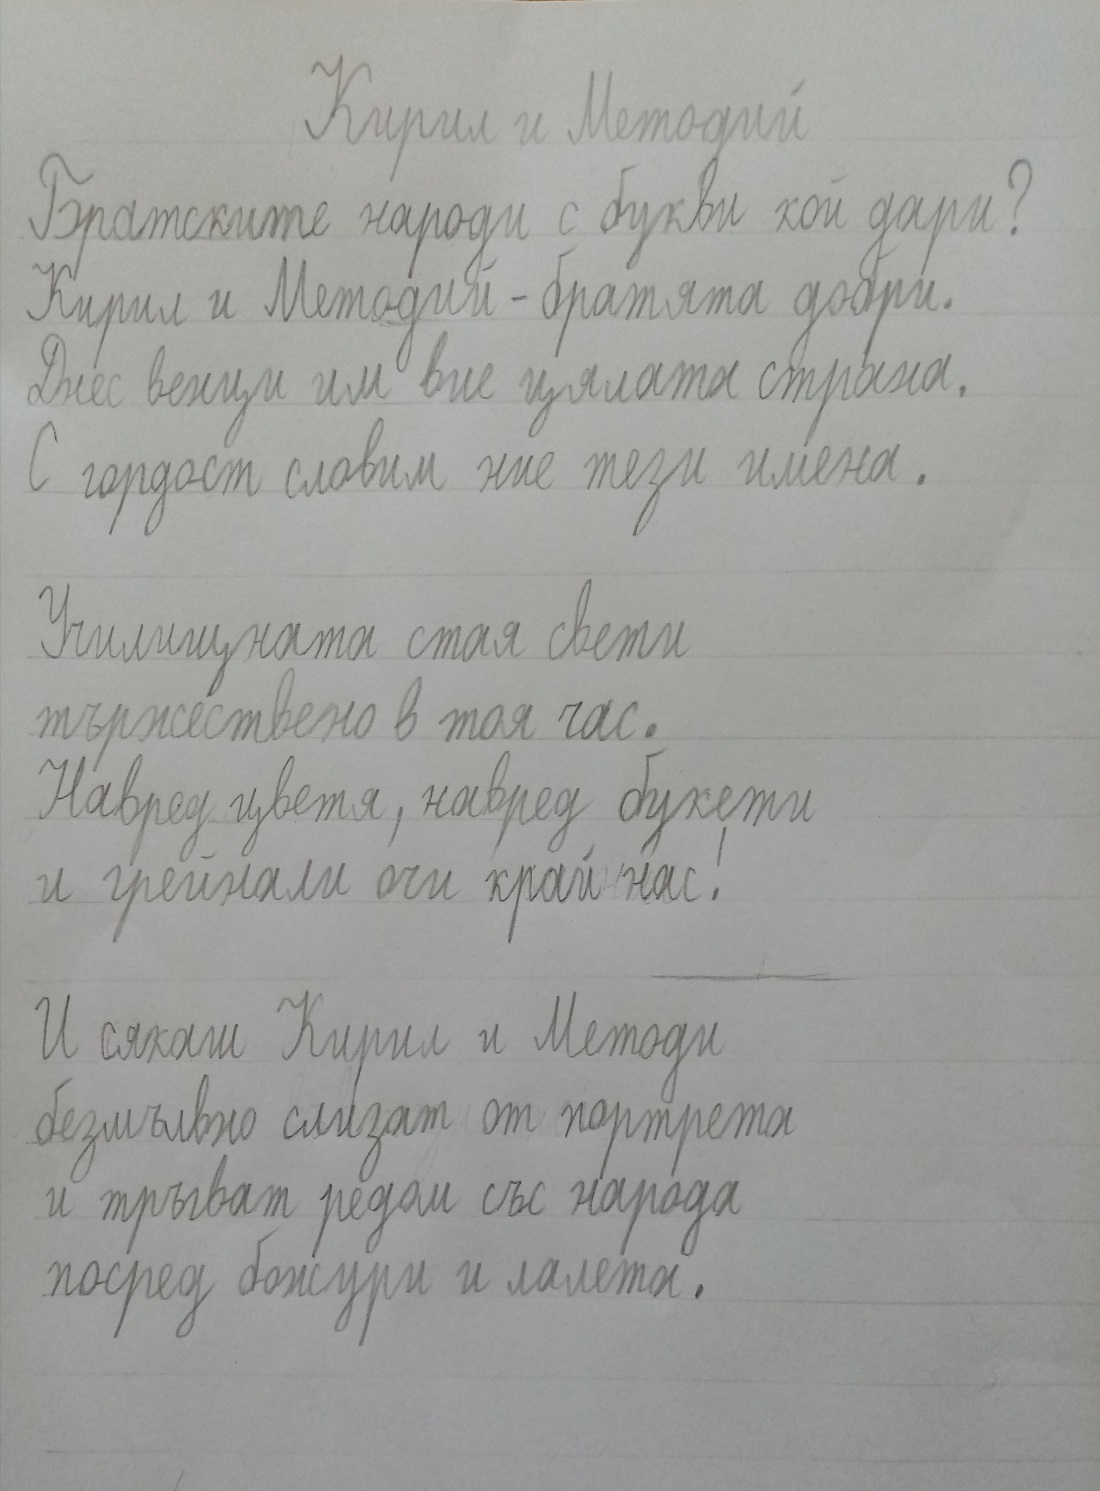 Кирил и Методий
Братските народи с букви кой дари?
Кирил и Методий - братята добри.
Днес венци им вие цялата страна.
С гордост славим ние тези имена.
Училищната стая свети
тържествено в тоя час.
Навред цветя, навред букети
и грейнали очи край нас!
И сякаш Кирил и Методи
безмълвно слизат от портрета
и тръгват редом със народа
посред божури и лалета.